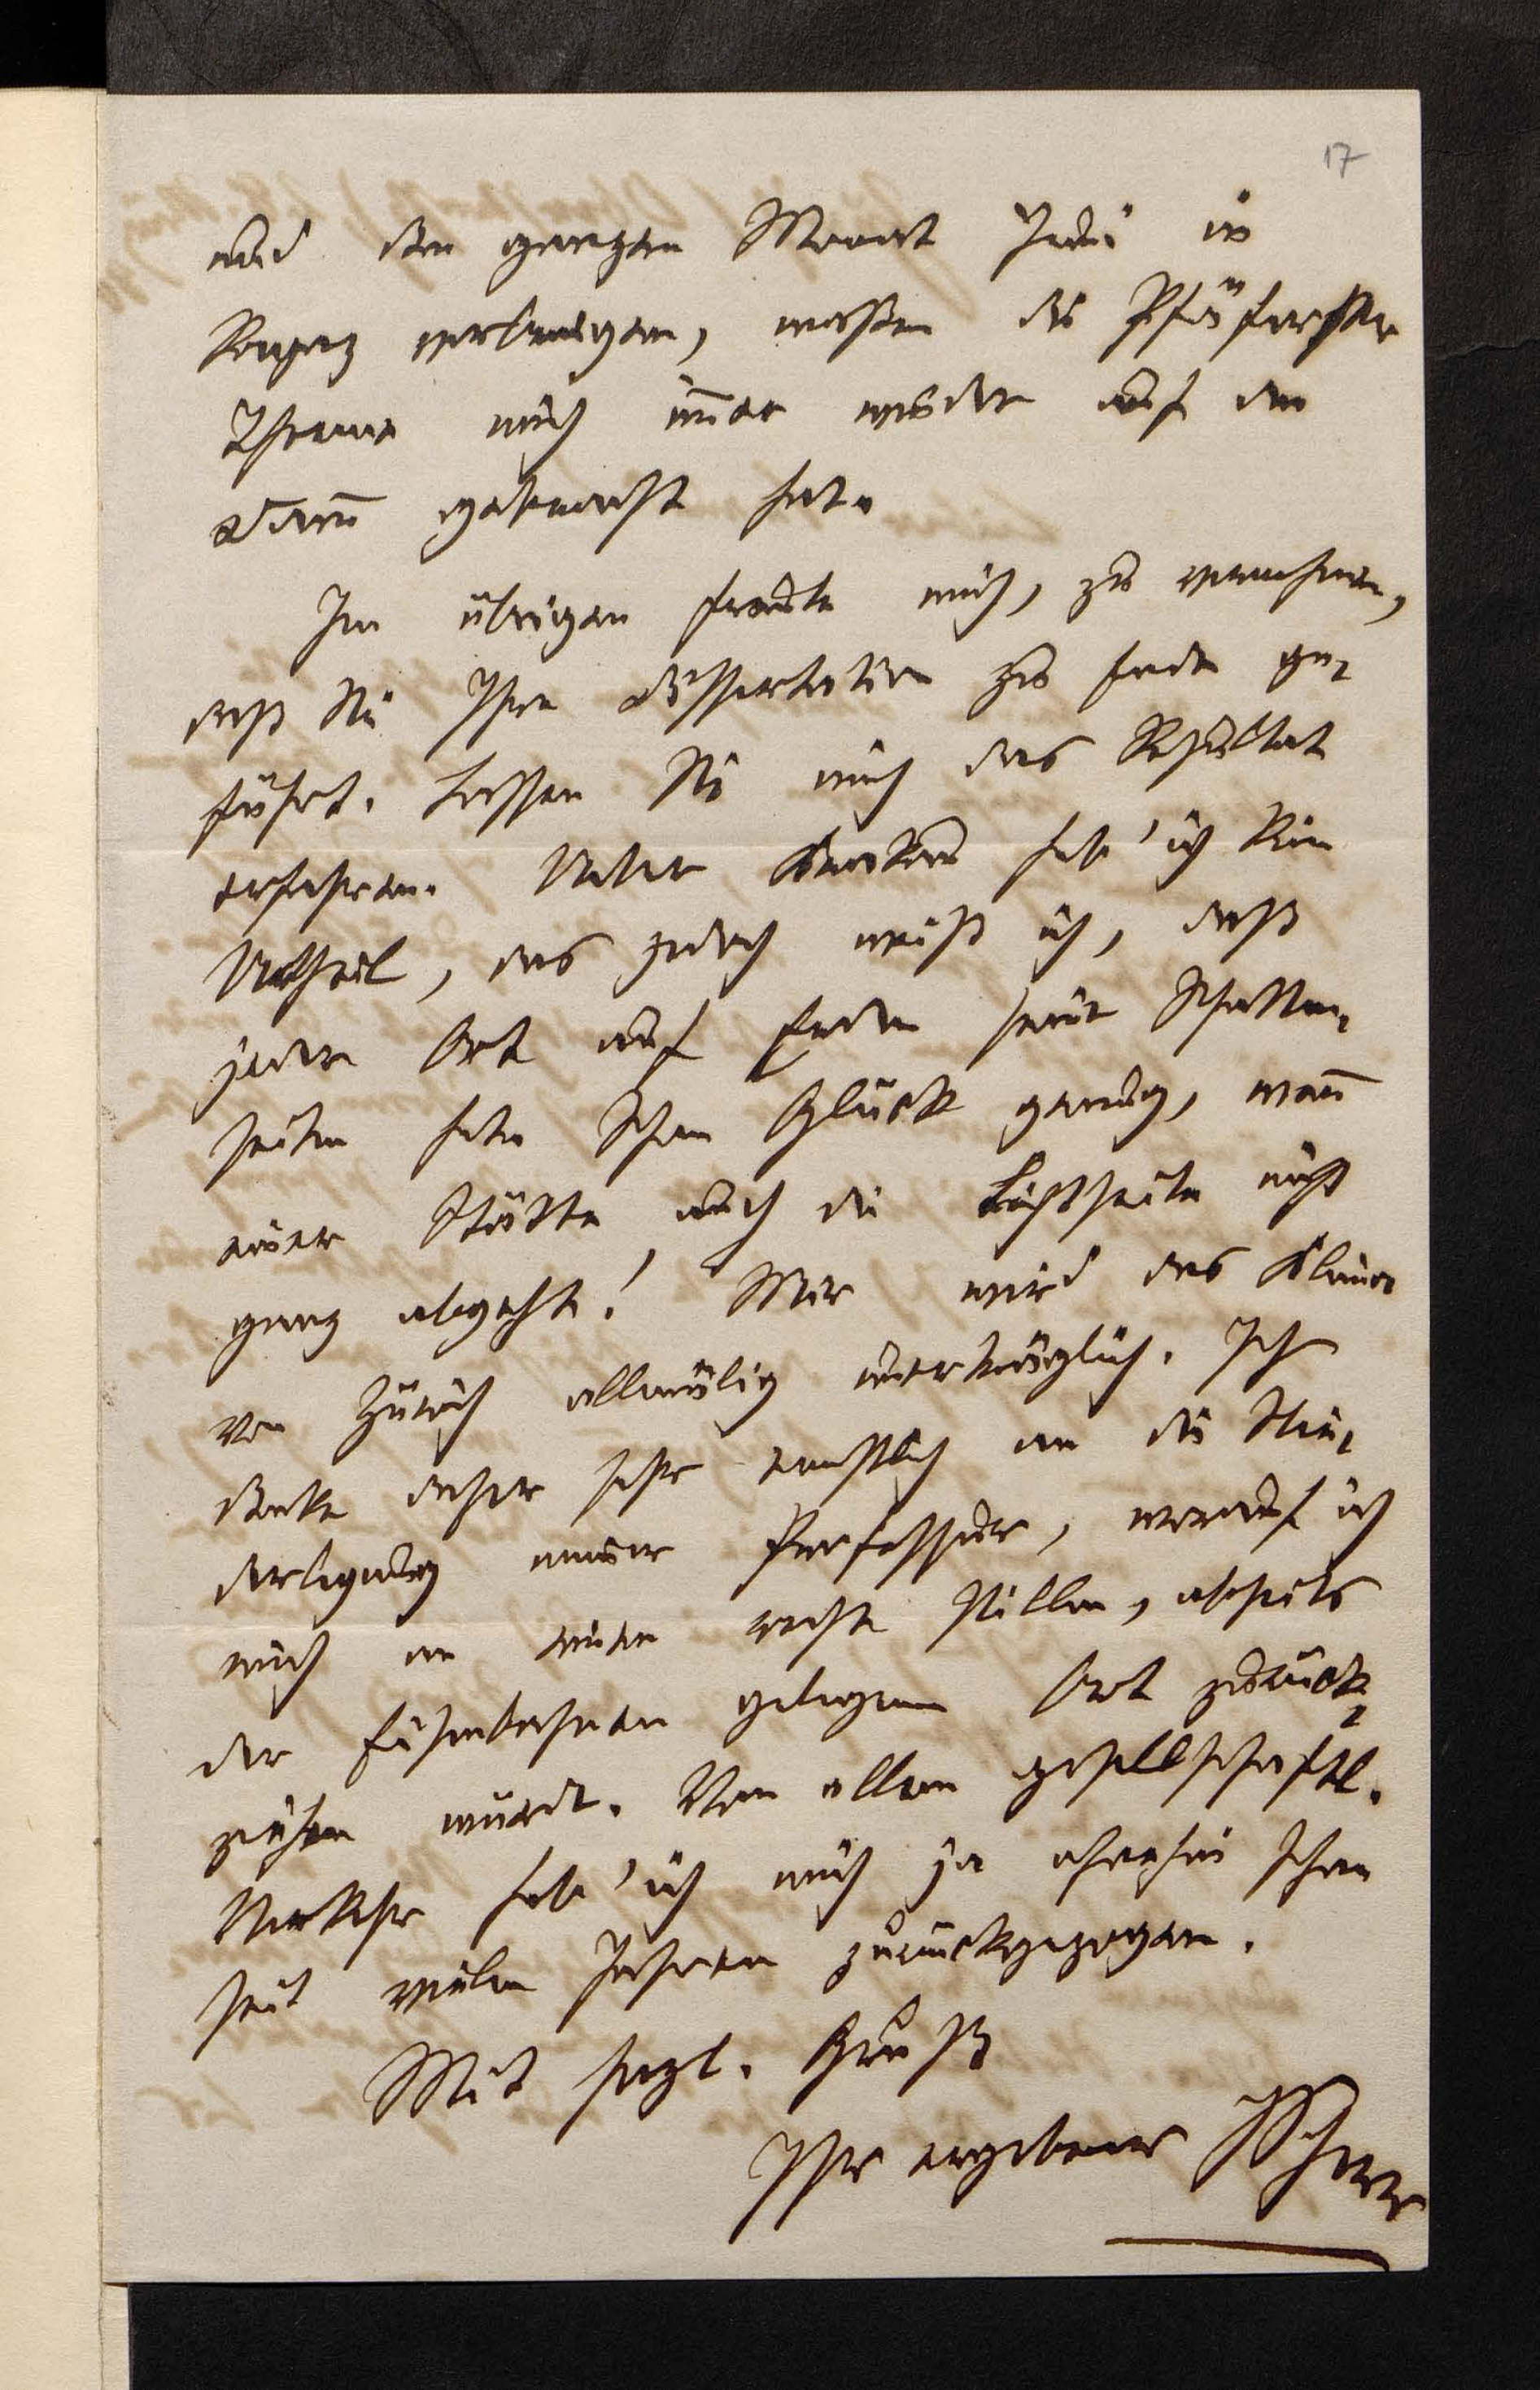 17
und den ganzen Monat Juni in
Ragaz verbringen, maßen die Pfäferser
Therme mich immer wieder auf den
Damm gebracht hat.
Im übrigen freute mich, zu vernehmen,
daß Sie Ihre Dissertation zu Ende ge-
führt. Lassen Sie mich das Resultat
erfahren. Ueber hab' ich kein
Urtheil, das jedoch weiß ich, daß
jeder Ort auf Erden seine Schatten-
seiten hat. Schon Glück genug, wenn
einer Stätte auch die Lichtseite nicht
ganz abgeht! Mir wird das Klima
von Zürich allmälig unerträglich. Ich
denke daher sehr ernstlich an die Nie-
derlegung meiner Professur, worauf ich
mich an einen recht stillen, abseits
der Eisenbahnen gelegenen Ort zurück-
ziehen würde. Von allem gesellschaftl.
Verkehr hab' ich mich ja ohnehin schon
seit vielen Jahren zurückgezogen.
Mit herzl. Gruß
Ihr ergebener JScherr